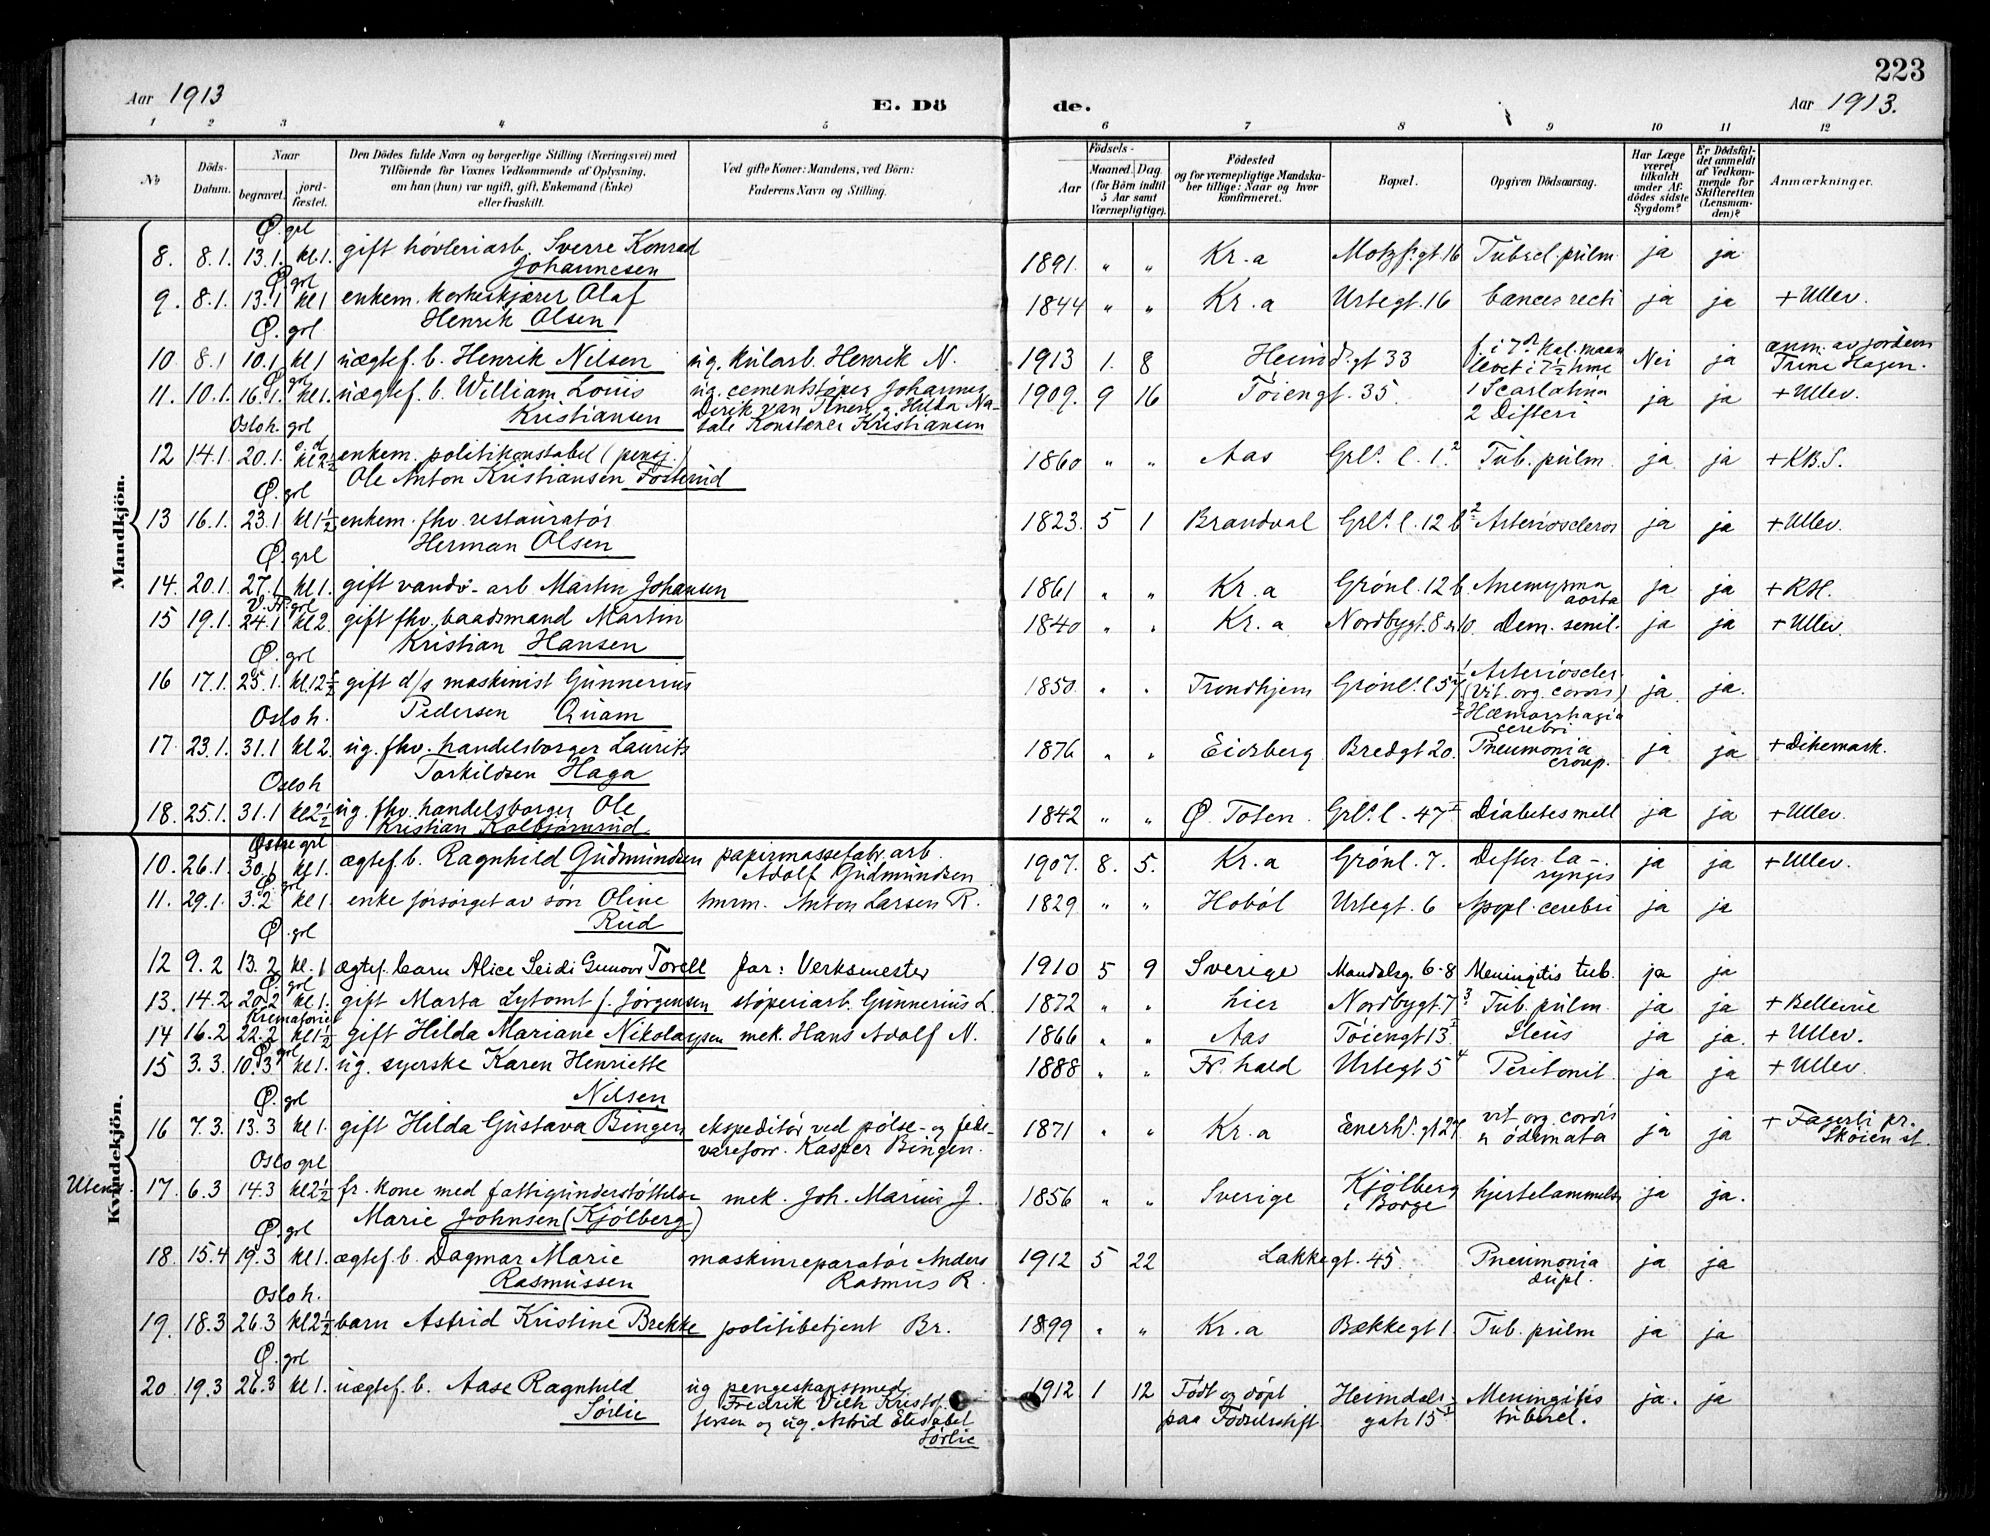 223
Aar 1913
E. Dö
de.
Aar 1913.
1 2 3 4 5 6 7 8 9 10 11 12
№
Döds-Datum.
Naar
begravet.
jord-fæstet.
Den Dödes fulde Navn og borgerlige Stilling (Næringsvei) med
Tilföiende for Voxnes Vedkommende af Oplysning,
om han (hun) var ugift, gift, Enkemand (Enke)
eller fraskilt.
Ved gifte Koner: Mandens, ved Börn:
Faderens Navn og Stilling.
Födsels-
Aar
Maaned. Dag
(for Börn indtil
5 Aar samt
Værnepligtige).
Födested
og for værnepligtige Mandska-
ber tillige: Naar og hvor
konfirmeret.
Bopæl.
Opgiven Dödsaarsag.
Har Læge
været
tilkaldt
under Af-
dödes sidste
Sygdom?
Er Dödsfal-
det anmeldt
af Vedkom-
mende for
Skifteretten
(Lensman-
den)?
Anmærkninger.
Mandkjön.
Ø. grl
8. 8.1. 13.1. kl.1. gift høvleriarb. Sverre Konrad 1891. " " Kr.a Motzf. gt. 16 Tubrcl. pulm ja ja
Johannesen
Ø. grl
9. 8.1. 13.1 kl 1 enkem. korkeskjærer Olaf 1844 " " Kr.a Urtegt. 16 Cancer recti ja ja + Ullev.
Henrik Olsen
Ø. grl
10 8.1 10.1 kl 1 uægtef. b. Henrik Nilsen ug. kularb. Henrik N. 1913 1. 8 Heimd. gt 33 levet i 7½ time Nei ja anm. av jordem
Trine Hagen.
11. 10.1. 16.1. kl 1. uægtef. b. William Louis ug. cementstøper Johannes 1909. 9 16 Tøiengt. 35. 1 Scarlatina ja ja + Ullev.
Kristiansen 2 Difteri
Kristiansen
Osloh. grl
12 14.1. 20.1. kl 2½ enkem. politikonstabel (pensj.) 1860 " " Aas Grls. l. 1.² Tub. pulm. ja ja + K.B.S.
Ole Anton Kristiansen Fosterud
Ø. grl
13 16.1. 23.1 kl 1½ enkem. fhv. restauratør 1823. 5 1 Brandval Grls. l. 12 b² Arterioscleros ja ja + Ullev.
Herman Olsen
Ø. grl
14. 20.1. 27.1 kl 1. gift vandv. arb Martin Johansen 1861 " " Kr.a Grønl. 12 b. aorta ja ja + RH.
15 19.1. 24.1 kl 2. gift fhv. baadsmand Martin 1840 " " Kr.a Nordbygt. 8 10. Dem. senil. ja ja + Ullev.
Kristian Hansen
Ø. grl
16 17.1. 25.1. kl 12½ gift d/s maskinist Gunnerius 1850. " " Trondhjem Grønl. l 57 1 Arterioscler ja ja.
Pedersen Quam (Vit. org. cordis)
2 Hæmorrhagia
cerebri
Osloh.
17. 23.1. 31.1 kl 2. ug. fhv. handelsborger Laurits 1876 " " Eidsberg Bredgt 20. Pneumonia ja ja + Dikemark.
Torkildsen Haga croup.
Osloh
18. 25.1. 31.1 kl 2½ ug. fhv. handelsborger Ole 1842 " " Ø. Toten. Grls. l. 47 Diabetes mell ja ja + Ullev.
Kristian Kolbjørnsrud
Kvindekjön.
Østre grl
10. 26.1. 30.1 kl 1. ægtef. b. Ragnhild Gudmundsen papirmassefabr. arb. 1907. 8. 5. Kr.a Grønl. 7. Difter. la- ja ja + Ullev.
Adolf Gudmundsen ryngis
Ø. grl
11. 29.1. 3.2 kl 1. enke forsørget av søn Oline tmrm. Anton Larsen R. 1829 " " Hobøl Urtegt. 6 Apopl. cerebri ja ja
Rud
Ø. grl
12 9.2 13.2 kl. 1 ægtef. barn Alice Seidi Gunvor Torell far: Verksmester 1910 5 9 Sverige Mandalsg. 6-8 Meningitis tub. ja ja
Ø. grl
13. 14.2 20.2 kl 1. gift Marta Lytomt f. Jørgensen støperiarb. Gunnerius L. 1872 " " Lier Nordbygt. 7³ Tub. pulm. ja ja + Bellevue
Krematoriet
14 16.2 22.2 kl 1½ gift Hilda Mariane Nikolaysen mek. Hans Adolf N. 1866 " " Aas Tøiengt 13 Ileus ja ja. + Ullev.
Ø. grl
15 3.3. 10.3 kl 1. ug. syerske Karen Henriette 1888 " " Fr. hald Urtegt 5⁴ Peritonit. ja ja + Ullev.
Nilsen
Ø. grl
16 7.3. 13.3 kl 1. gift Hilda Gustava Bingen ekspeditør ved pølse- og fede- 1871 " " Kr.a Enerh. gt 27. vit. org. cordis ja ja + Fagerli pr.
vareforr. Kasper Bingen. ødemata Skøien st.
Oslo grl
Utenb. 17. 6.3 14.3 kl 2½ fr. kone med fattigunderstøttelse mek. Joh. Marius J. 1856 " " Sverige Kjølberg hjertelammelse ja ja.
Marie Johnsen (Kjølberg) i Borge
Ø. grl
18. 15.4 19.3 kl 1. ægtef. b. Dagmar Marie maskinreparatør Anders 1912 5 22 Lakkegt. 45 Pneumonia ja ja
Rasmussen Rasmus R. dupl.
Osloh.
19. 18.3 26.3 kl 2½ barn Astrid Kristine Brekke politibetjent Br. 1899 " " Kr.a Bækkegt 1. Tub. pulm ja ja
Ø. grl
20 19.3 26.3 kl 1. uægtef. b. Aase Ragnhild ug pengeskapssmed 1912 1 12 Født og døpt Heimdals- Meningitis ja. ja
Sørlie Fredrik Vilh. Kristof- paa Fødselsstift. gate 15 tubercl.
fersen og ug. Astrid Elisabet
Sørlie